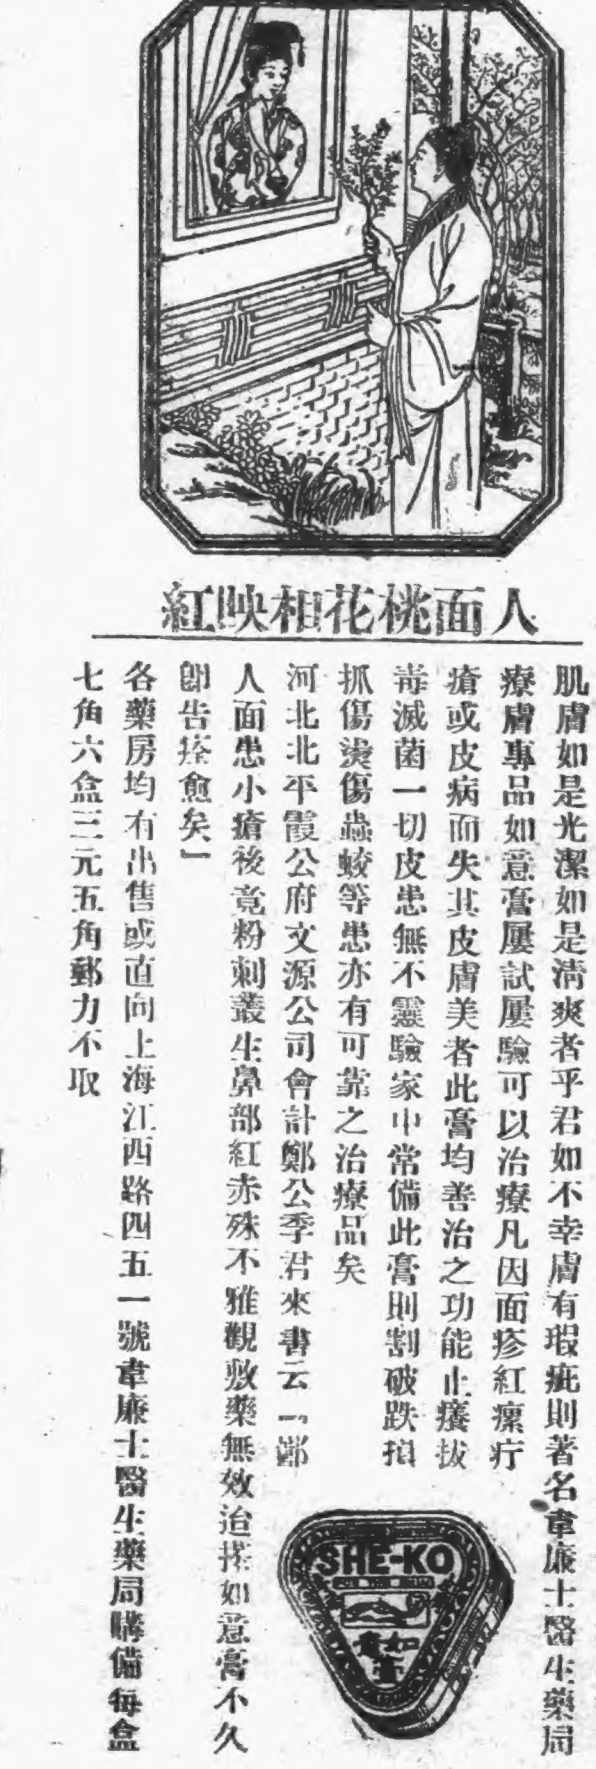 人面桃花相映紅
肌膚如是光潔如是清爽者乎君如不幸膚有瑕疵則著名韋廉士醫生藥局
療膚專品如意膏屢試屢驗可以治療凡因面疹紅瘰疔
瘡或皮病而失其皮膚美者此膏均善治之功能止癢拔
毒滅菌一切皮患無不靈驗家中常備此膏則割破跌損
抓傷燙傷蟲蛟等患亦有可靠之治療品矣
河北北平霞公府文源公司會計鄭公季君來書云「鄙
人面患小瘡後竟粉刺叢生鼻部紅赤殊不雅觀敷藥無效迨搽如意膏不久
卽告痊愈矣」
各藥房均有出售或直向上海江西路四五一號韋廉士醫生藥局購備每盒
七角六盒三元五角郵力不取
SHE-KO
FOR THE SKIN
如意膏